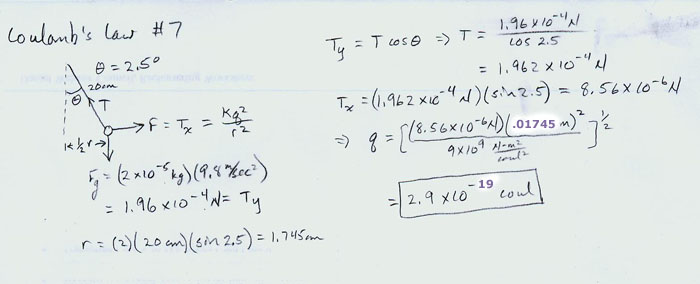 Coulomb's Law #7
θ = 2.5°
20cm
θ
T
F = Tx = Kq²/r²
½r
Fg = (2×10⁻⁵ kg)(9.8 m/sec²)
= 1.96×10⁻⁴ N = Ty
r = (2)(20 cm)(sin 2.5) = 1.745cm
Ty = T cosθ ⇒ T = 1.96×10⁻⁴N / cos 2.5
= 1.962 × 10⁻⁴ N
Tx = (1.962 ×10⁻⁴ N)(sin 2.5) = 8.56×10⁻⁶ N
⇒ q = [(8.56×10⁻⁶N)(.01745 m)² / 9×10⁹ N-m²/coul²]^½
= 2.9 ×10⁻¹⁹ coul